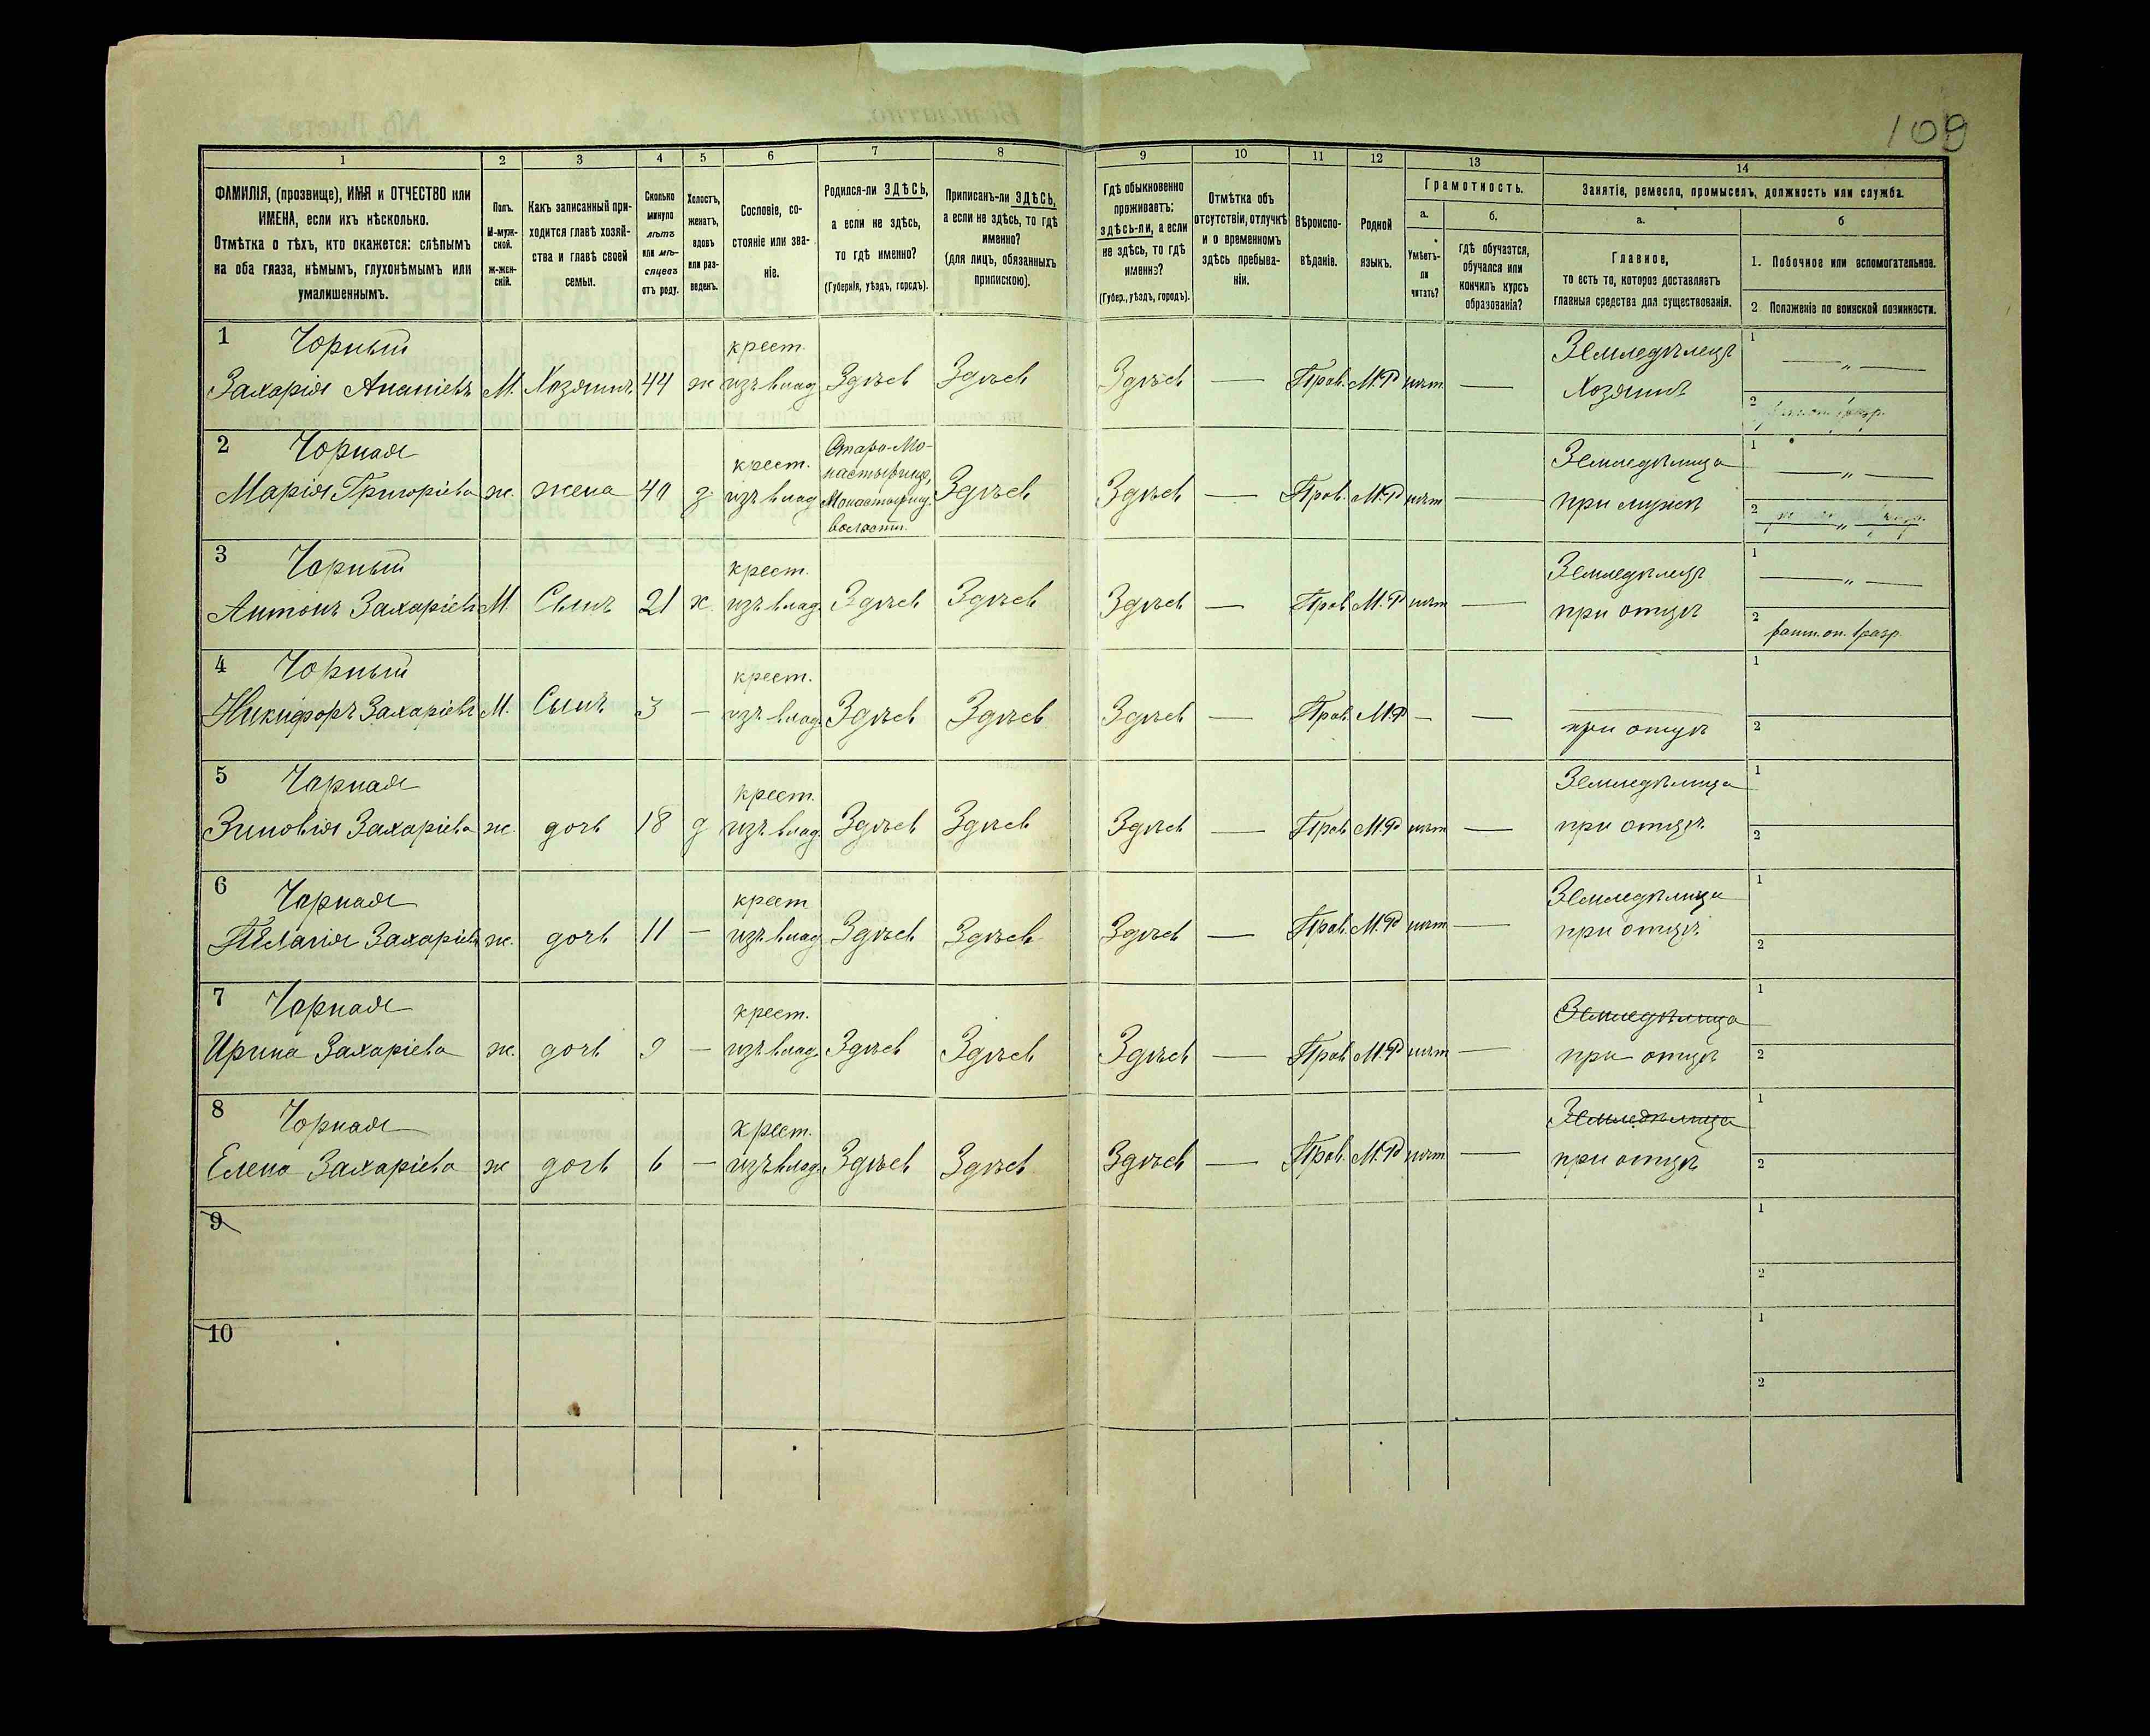 109
1 2 3 4 5 6 7 8 9 10 11 12 13 14
ФАМИЛІЯ, (прозвище), ИМЯ и ОТЧЕСТВО или
ИМЕНА, если ихъ нѣсколько.
Отмѣтка о тѣхъ, кто окажется: слѣпымъ
на оба глаза, нѣмымъ, глухонѣмымъ или
умалишеннымъ.
Полъ.
М-муж-
ской.
ж-жен-
скій.
Какъ записанный при-
ходится главѣ хозяй-
ства и главѣ своей
семьи.
Сколько
минуло
лѣтъ
или мѣ-
сяцевъ
отъ роду.
Холостъ,
женатъ,
вдовъ
или раз-
веденъ.
Сословіе, со-
стояніе или зва-
ніе.
Родился-ли ЗДѢСЬ,
а если не здѣсь,
то гдѣ именно?
(Губернія, уѣздъ, городъ).
Приписанъ-ли ЗДѢСЬ,
а если не здѣсь, то гдѣ
именно?
(для лицъ, обязанныхъ
припискою).
Гдѣ обыкновенно
проживаетъ:
здѣсь-ли, а если
не здѣсь, то гдѣ
именно?
(Губер., уѣздъ, городъ).
Отмѣтка объ
отсутствіи, отлучкѣ
и о временномъ
здѣсь пребыва-
ніи.
Вѣроиспо-
вѣданіе.
Родной
языкъ.
Грамотность.
а. б.
Умѣетъ-
ли
читать?
гдѣ обучается,
обучался или
кончилъ курсъ
образованія?
Занятіе, ремесло, промыселъ, должность или служба.
а. б
Главное,
то есть то, которое доставляетъ
главныя средства для существованія.
1. Побочное или вспомогательное.
2 Положеніе по воинской повинности.
1 Чорный крест. Земледѣлецъ 1 — „ —
Захарія Ананіевъ М. Хозяинъ 44 ж изъ влад. Здѣсь Здѣсь Здѣсь — Прав. М.Р нѣт — Хозяинъ 2
2 Чорная крест. Старо-Мо-
настырище,
Монастырищ.
волости. Земледѣлица 1 — „ —
Марія Григоріева ж. жена 40 з. изъ влад. Здѣсь Здѣсь — Прав. М.Р нѣт — при мужѣ 2 — „ —
3 Чорный крест. Земледѣлецъ 1 — „ —
Антонъ Захаріевъ М. Сынъ 21 х. изъ влад. Здѣсь Здѣсь Здѣсь — Прав. М.Р нѣт — при отцѣ 2 ратн. оп. 1 разр.
4 Чорный крест. 1
Никифоръ Захаріевъ М. Сынъ 3 — изъ влад. Здѣсь Здѣсь Здѣсь — Прав. М.Р — — при отцѣ 2
5 Чорная крест. Земледѣлица 1
Зиновія Захаріева ж. дочь 18 д изъ влад. Здѣсь Здѣсь Здѣсь — Прав. М.Р нѣт — при отцѣ. 2
6 Чорная крест Земледѣлица 1
Пелагія Захаріева ж. дочь 11 — изъ влад. Здѣсь Здѣсь Здѣсь — Прав. М.Р нѣт — при отцѣ. 2
7 Чорная крест. Земледѣлица 1
Ирина Захаріева ж. дочь 9 — изъ влад. Здѣсь Здѣсь Здѣсь — Прав. М.Р нѣт — при отцѣ 2
8 Чорная крест. Земледѣлица 1
Елена Захаріева ж дочь 6 — изъ влад. Здѣсь Здѣсь Здѣсь — Прав. М.Р нѣт — при отцѣ 2
9 1
2
10 1
2